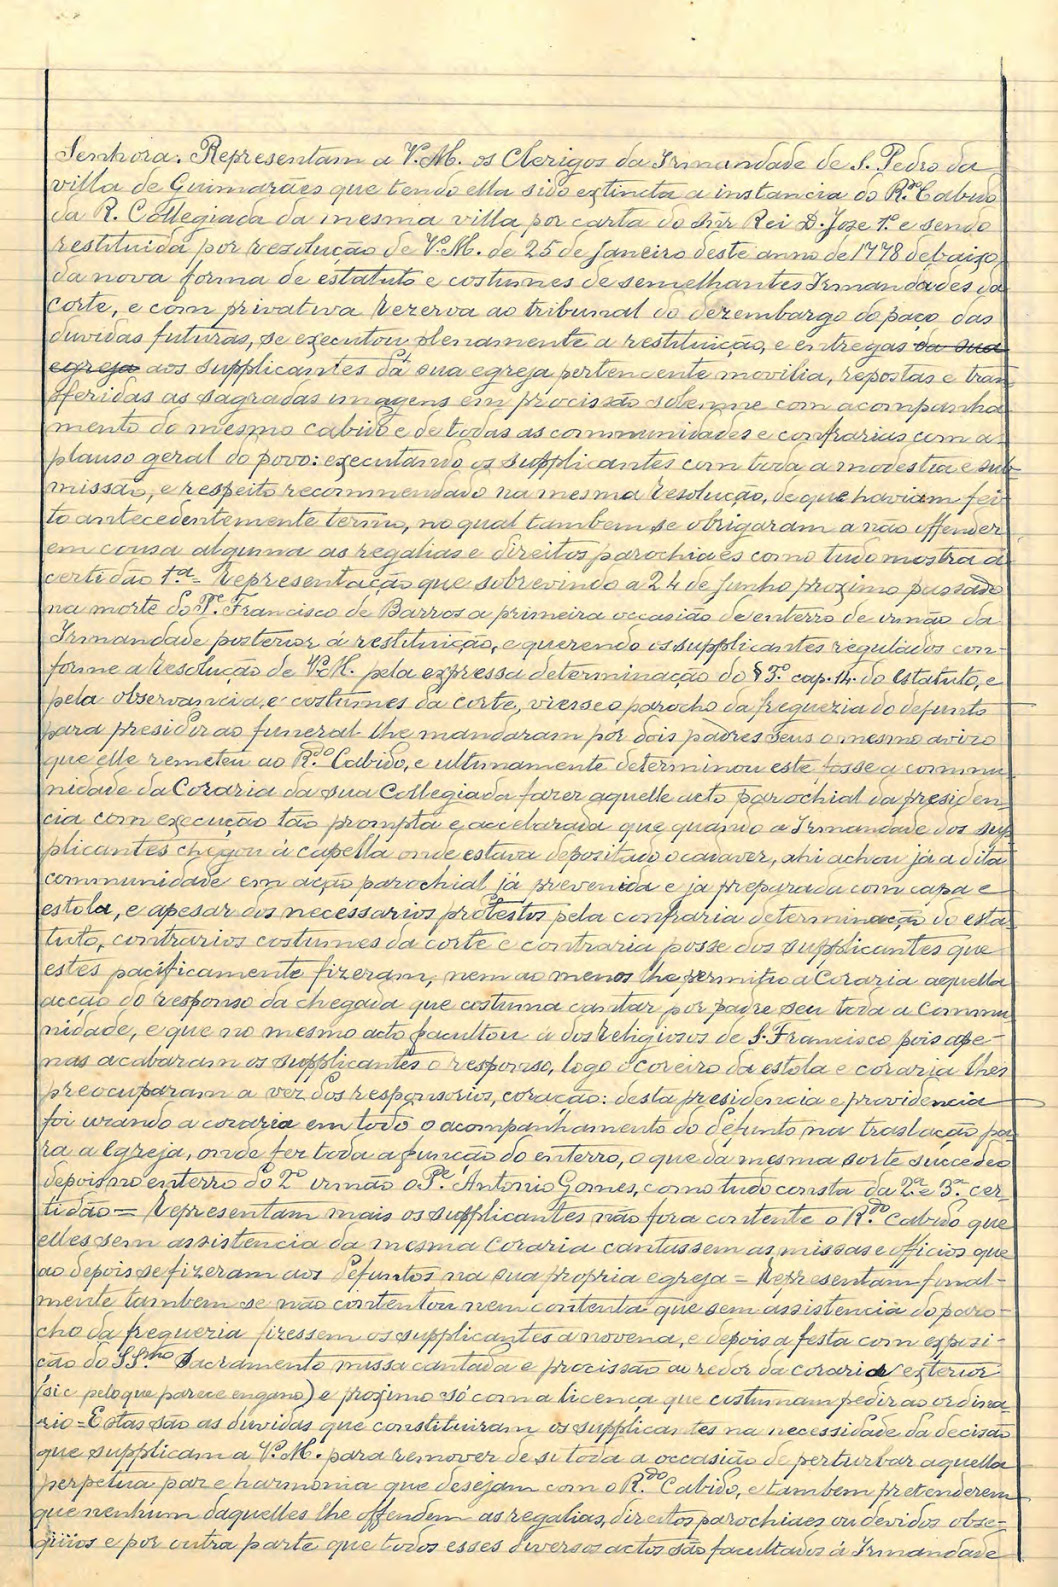 Senhora. Representam a V. M. os Clerigos da Irmandade de S. Pedro da
villa de Guimarães que tendo ella sido extincta a instancia do R.do Cabido
da R. Collegiada da mesma villa por carta do Snr Rei D. Joze 1.º e sendo
restituida por rezolução de V. M. de 25 de Janeiro deste anno de 1778 debaixo
da nova forma de estatuto e costumes de semelhantes Irmandades da
corte, e com privativa rezerva ao tribunal do dezembargo do paço das
duvidas futuras, se executou plenamente a restituição, e entregas da sua
egreja aos supplicantes da sua egreja pertencente movilia, repostas e tran
sferidas as sagradas imagens em procissão solemne com acompanha
mento do mesmo cabido e de todas as communidades e confrarias com a-
plauso geral do povo: executando os supplicantes com toda a modestia e sub
missão, e respeito recommendado na mesma resolução, de que haviam fei
to antecedentemente termo, no qual tambem se obrigaram a não offender
em cousa alguma as regalias e direitos parochiaes como tudo mostra a
certidão 1.ª = Representação que sobrevindo a 24 de Junho proximo passado
na morte do P.e Francisco de Barros a primeira occasião de enterro de irmão da
Irmandade posterior á restituição, e querendo os supplicantes regulados con-
forme a resolução de V. M. pela expressa determinação do § 7.º cap. 14. do estatuto, e
pela observancia, e costumes da corte, viesse o parocho da freguezia do defunto
para presidir ao funeral lhe mandaram por dois padres seus o mesmo avizo
que elle remeteu ao R.do Cabido, e ultimamente determinou este fosse a commu
nidade da Coraria da sua Collegiada fazer aquelle acto parochial da presiden
cia com execução tão prompta e accelarada que quando a Irmandade dos sup
plicantes chegou á capella onde estava depositado o cadaver, ahi achou já a dita
communidade em acção parochial já prevenida e ja preparada com capa e
estola, e apesar dos necessarios protestos pela contraria determinação do esta
tuto, contrarios costumes da corte e contraria posse dos supplicantes que
estes pacificamente fizeram, nem ao menos lhe permitio a Coraria aquella
acção do responso da chegada que costuma cantar por padre seu toda a commu
nidade, e que no mesmo acto facultou á dos religiosos de S. Francisco pois ape-
nas acabaram os supplicantes o responso, logo o coreiro da estola e coraria lhes
preocuparam a vez dos responsorios, coração: desta presidencia e providencia
foi uzando a coraria em todo o acompanhamento do defunto na traslação pa
ra a Egreja, onde fez toda a função do enterro, o que da mesma sorte succedeo
depois no enterro do 2.º irmão o P.e Antonio Gomes, como tudo consta da 2.ª e 3.ª cer
tidão = Representam mais os supplicantes não fora contente o R.do Cabido que
elles sem assistencia da mesma Coraria cantassem as missas e officios que
ao depois se fizeram aos defuntos na sua propria egreja = Representam final-
mente tambem se não contentou nem contenta que sem assistencia do paro-
cho da freguezia fizessem os supplicantes a novena, e depois a festa com exposi-
ção do SS.mo Sacramento missa cantada e procissão ao redor da coraria exterior
(sic pelo que parece engano) e proximo só com a licença que custumam pedir ao ordina
rio = Estas são as duvidas que constituiram os supplicantes na necessidade da decisão
que supplicam a V. M. para remover de si toda a occasião de perturbar aquella
perpetua paz e harmonia que desejam com o R.do Cabido, e tambem pretenderem
que nenhum daquelles lhe offendem as regalias, direitos parochiaes ou devidos obse-
quios e por outra parte que todos esses diversos actos são facultados á Irmandade